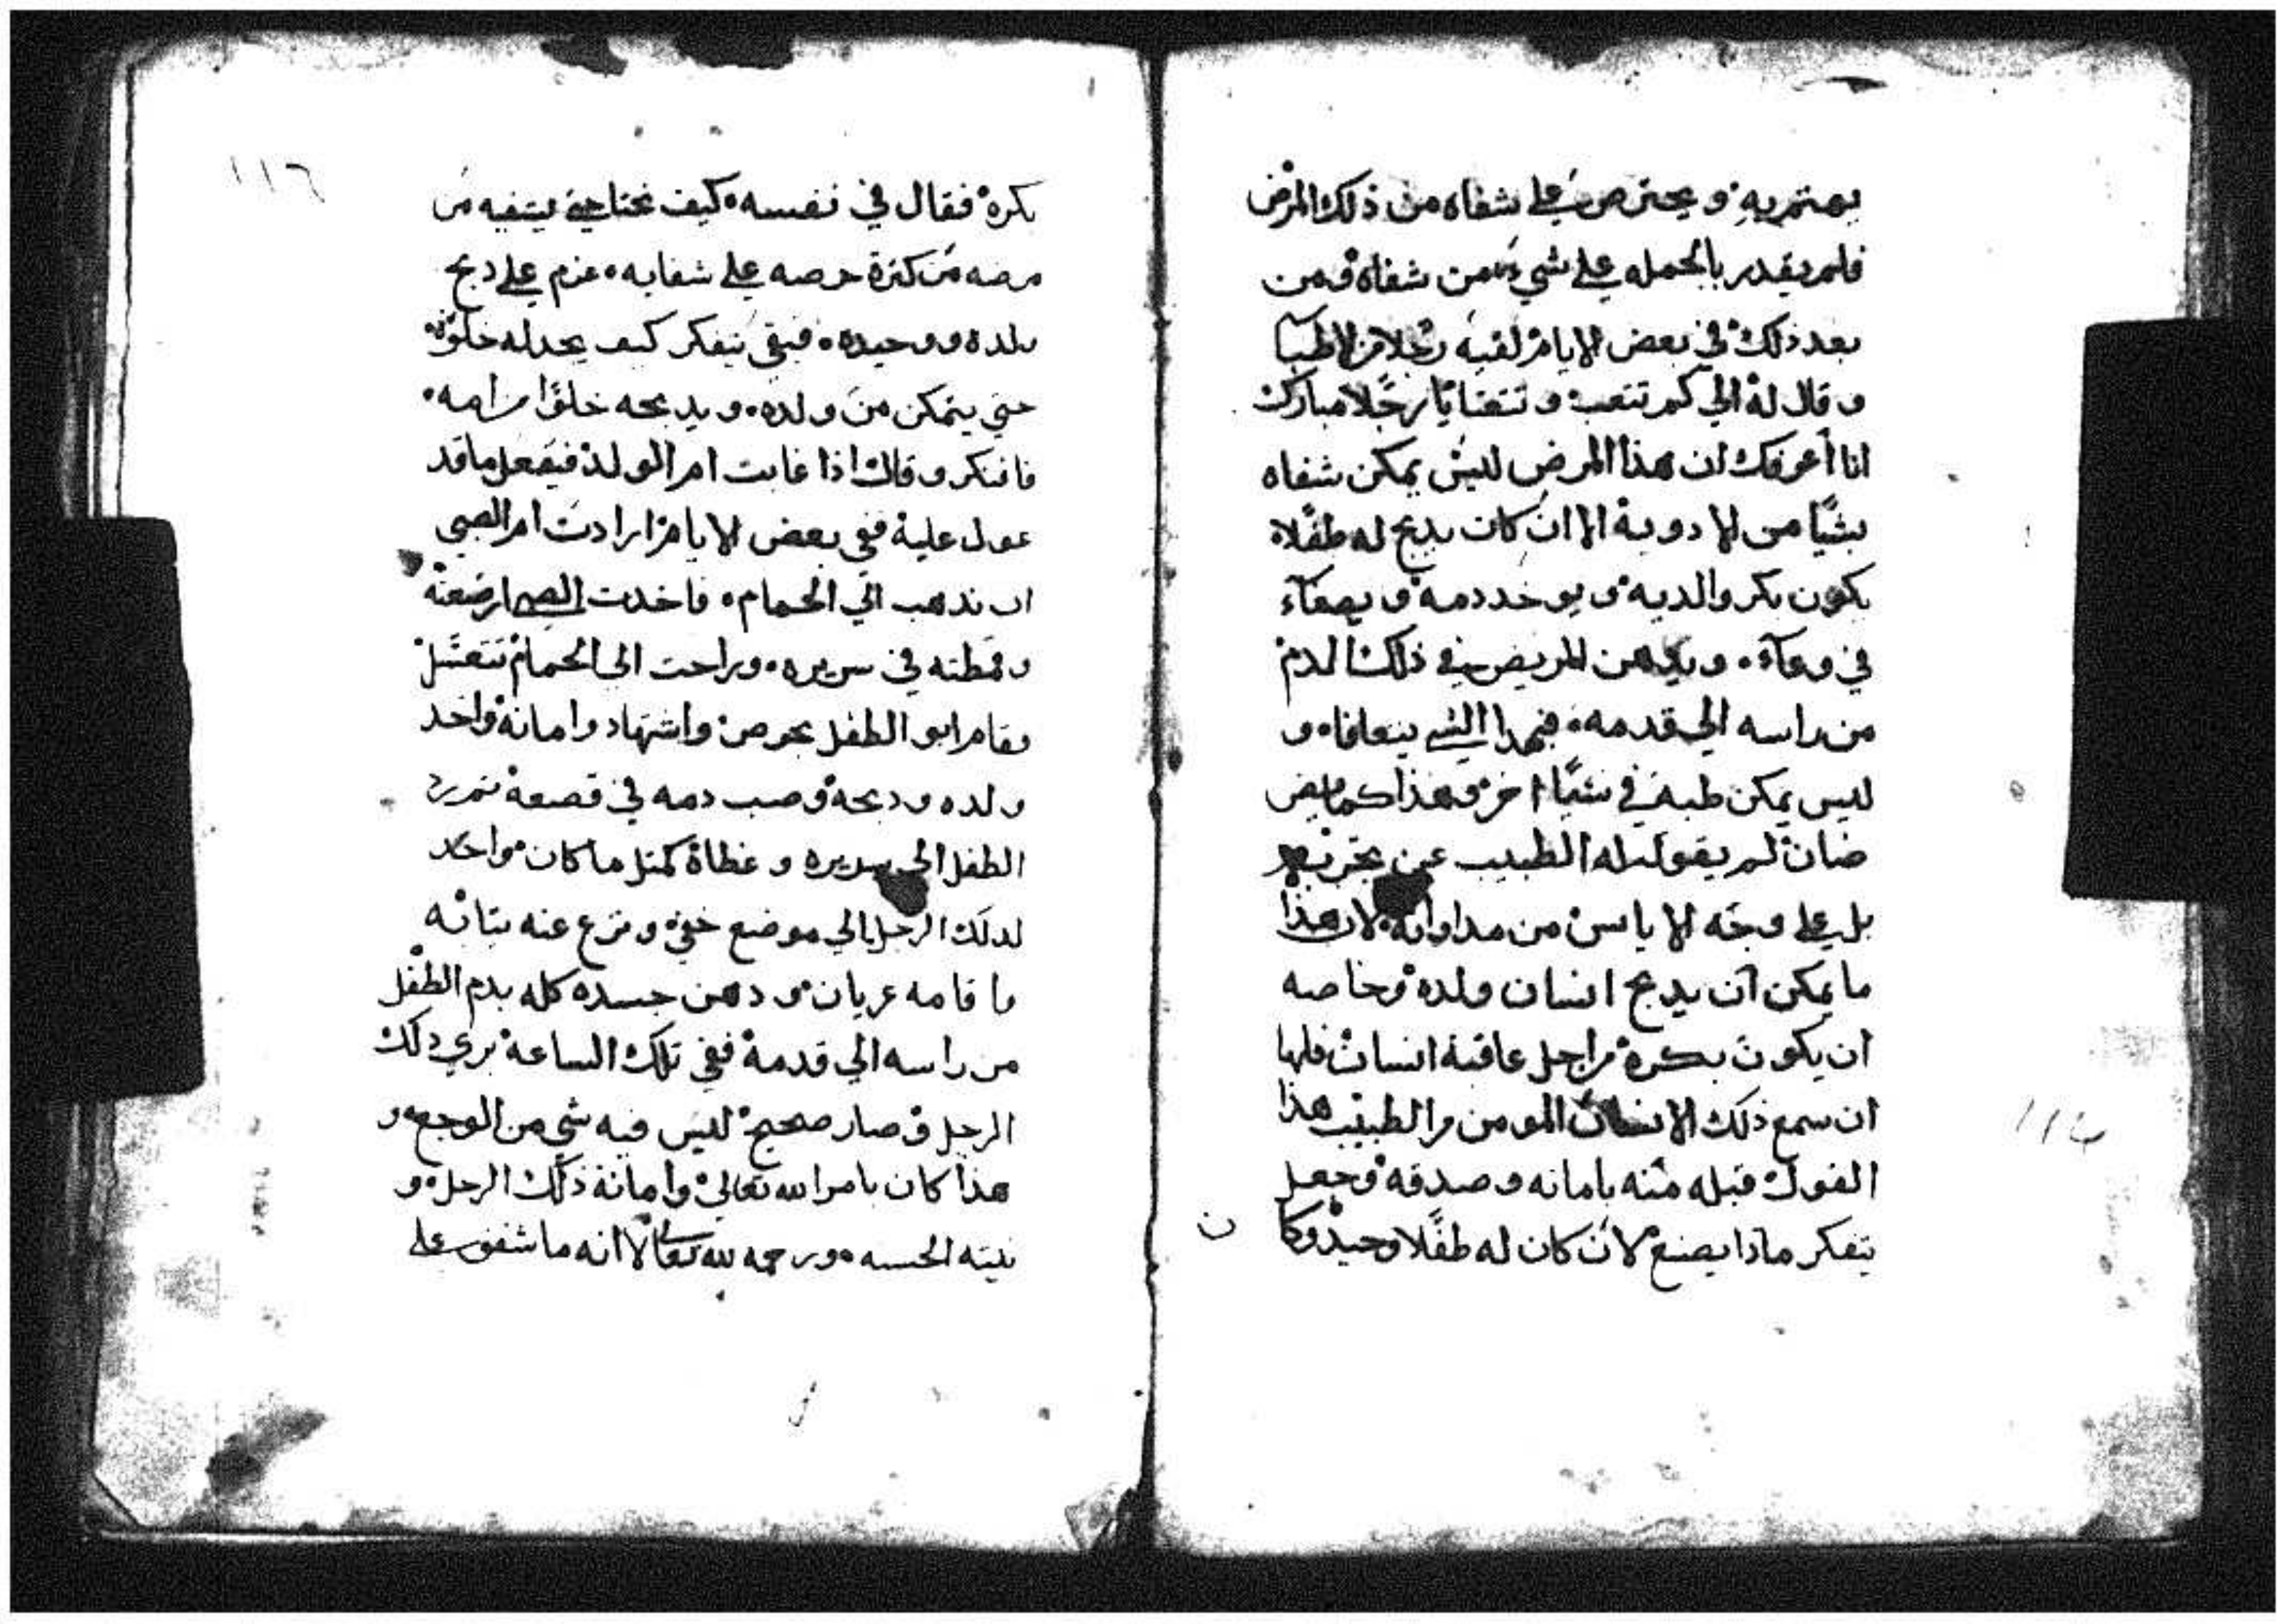 يهتم به و يحترص على شفاه من ذلك المرض
فلم يقدر بالجمله على شي من شفاه ومن
بعد ذلك في بعض الايام لقيه رجلا من الاطبا
و قال له الي كم تتعب و تتعنا يا رجلا مبارك
انا أعرفك ان هذا المرض ليس يمكن شفاه
بشيًا من الادوية الا ان كان يدبح له طفلا
يكون بكر والديه و يوخد دمه و يصفآء
في وعآء و يدهن المريض في ذلك الدم
من راسه الي قدمه فبهدا الشي يتعافاه و
ليس يمكن طبه في شيًا اخر وهذا
لم يقول له الطبيب عن
بل على وجه الاياس من مداواته لان هذا
ما يمكن ان يدبح انسان ولده وخاصه
ان يكون بكره من اجل عافية انسان فلما
ان سمع ذلك الانسان المومن من الطبيب هذا
القول قبله منه بامانه و صدقه وجعل
يتفكر مادا يصنع لان كان له طفلا وحيد وكا
ن
١١٦
بكره فقال في نفسه كيف يشفيه من
مرضه من كترة حرصه علي شفايه عزم علي دبح
ولده ووحيده فبقي يتفكر كيف يجد له خلوه
حتي يتمكن من ولده و يدبحه خلوًا من امه
فافتكر و قال اذا غابت ام الولد فيفعل ما قد
عول عليه ففي بعض الايام ارادت ام الصبي
ان تدهب الي الحمام فاخدت الصبي ارضعته
وقمطته في سريره وراحت الى الحمام تتغسل
فقام ابو الطفل بحرص واشتهاد وامانة واخد
ولده ودبحه وصب دمه في قصعة ثم رد
الطفل الي سريره و غطاه كمتل ما كان واخد
لدلك الرجل الي موضع خفي و نزع عنه تيابه
و اقامه عريان و دهن جسده كله بدم الطفل
من راسه الي قدمه ففي تلك الساعة بري دلك
الرجل و صار صحيح ليس فيه شي من الوجع و
هذا كان بامر الله تعالي وامانة ذلك الرجل و
نيته الحسنه ورحمه الله تعالى لانه ما شفق على